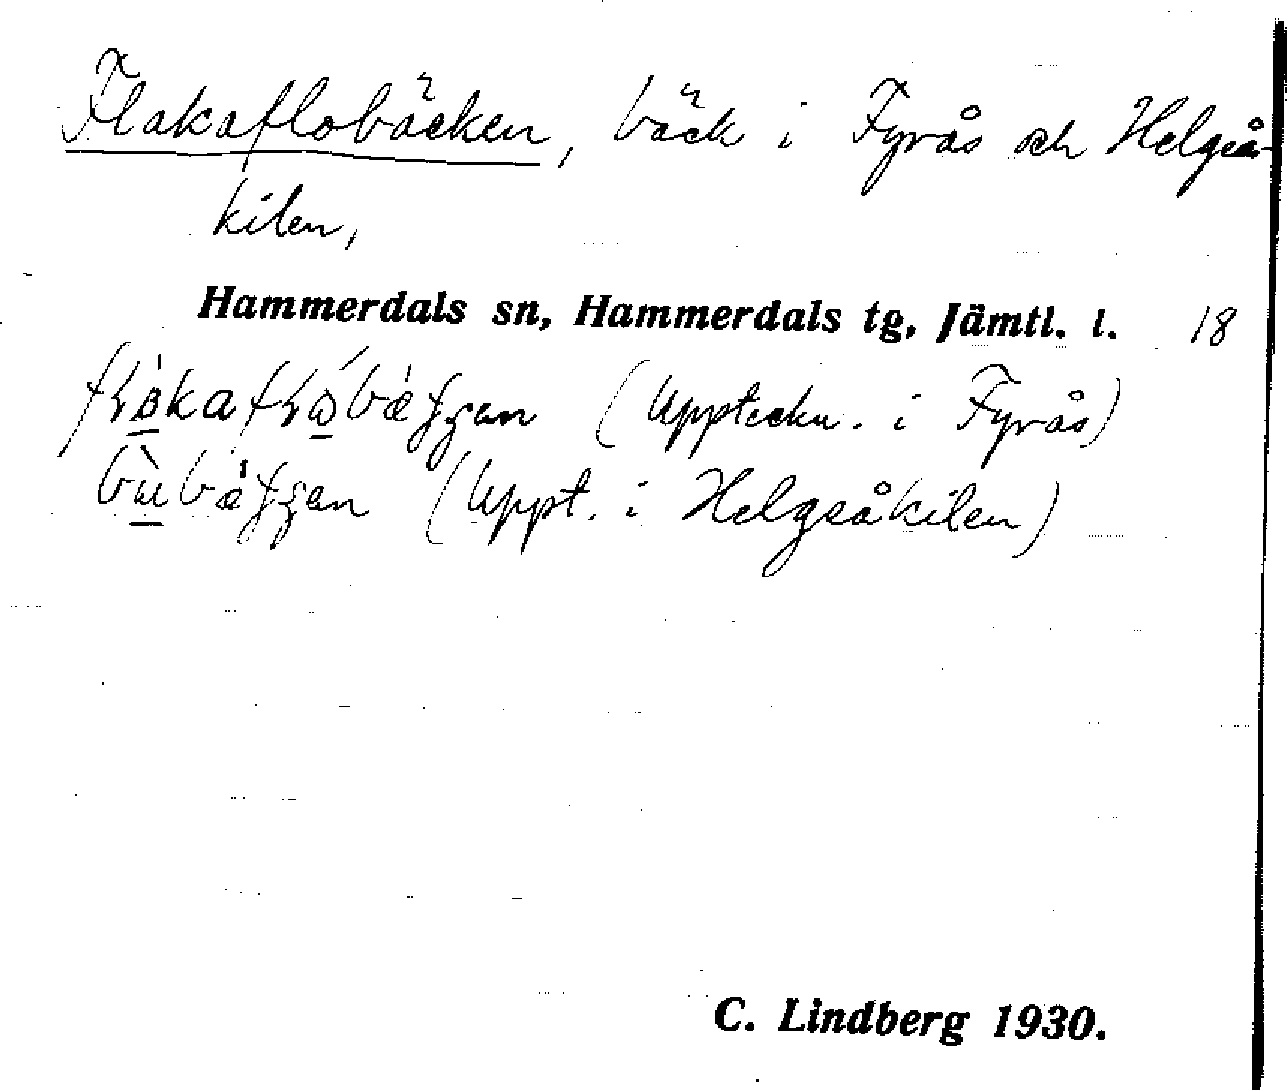 Flakaflobäcken, bäck i Fyrås och Helgså-
kilen,
Hammerdals sn, Hammerdals tg, Jämtl. l. 18
(Uppteckn. i Fyrås)
(Uppt. i Helgsåkilen)
C. Lindberg 1930.